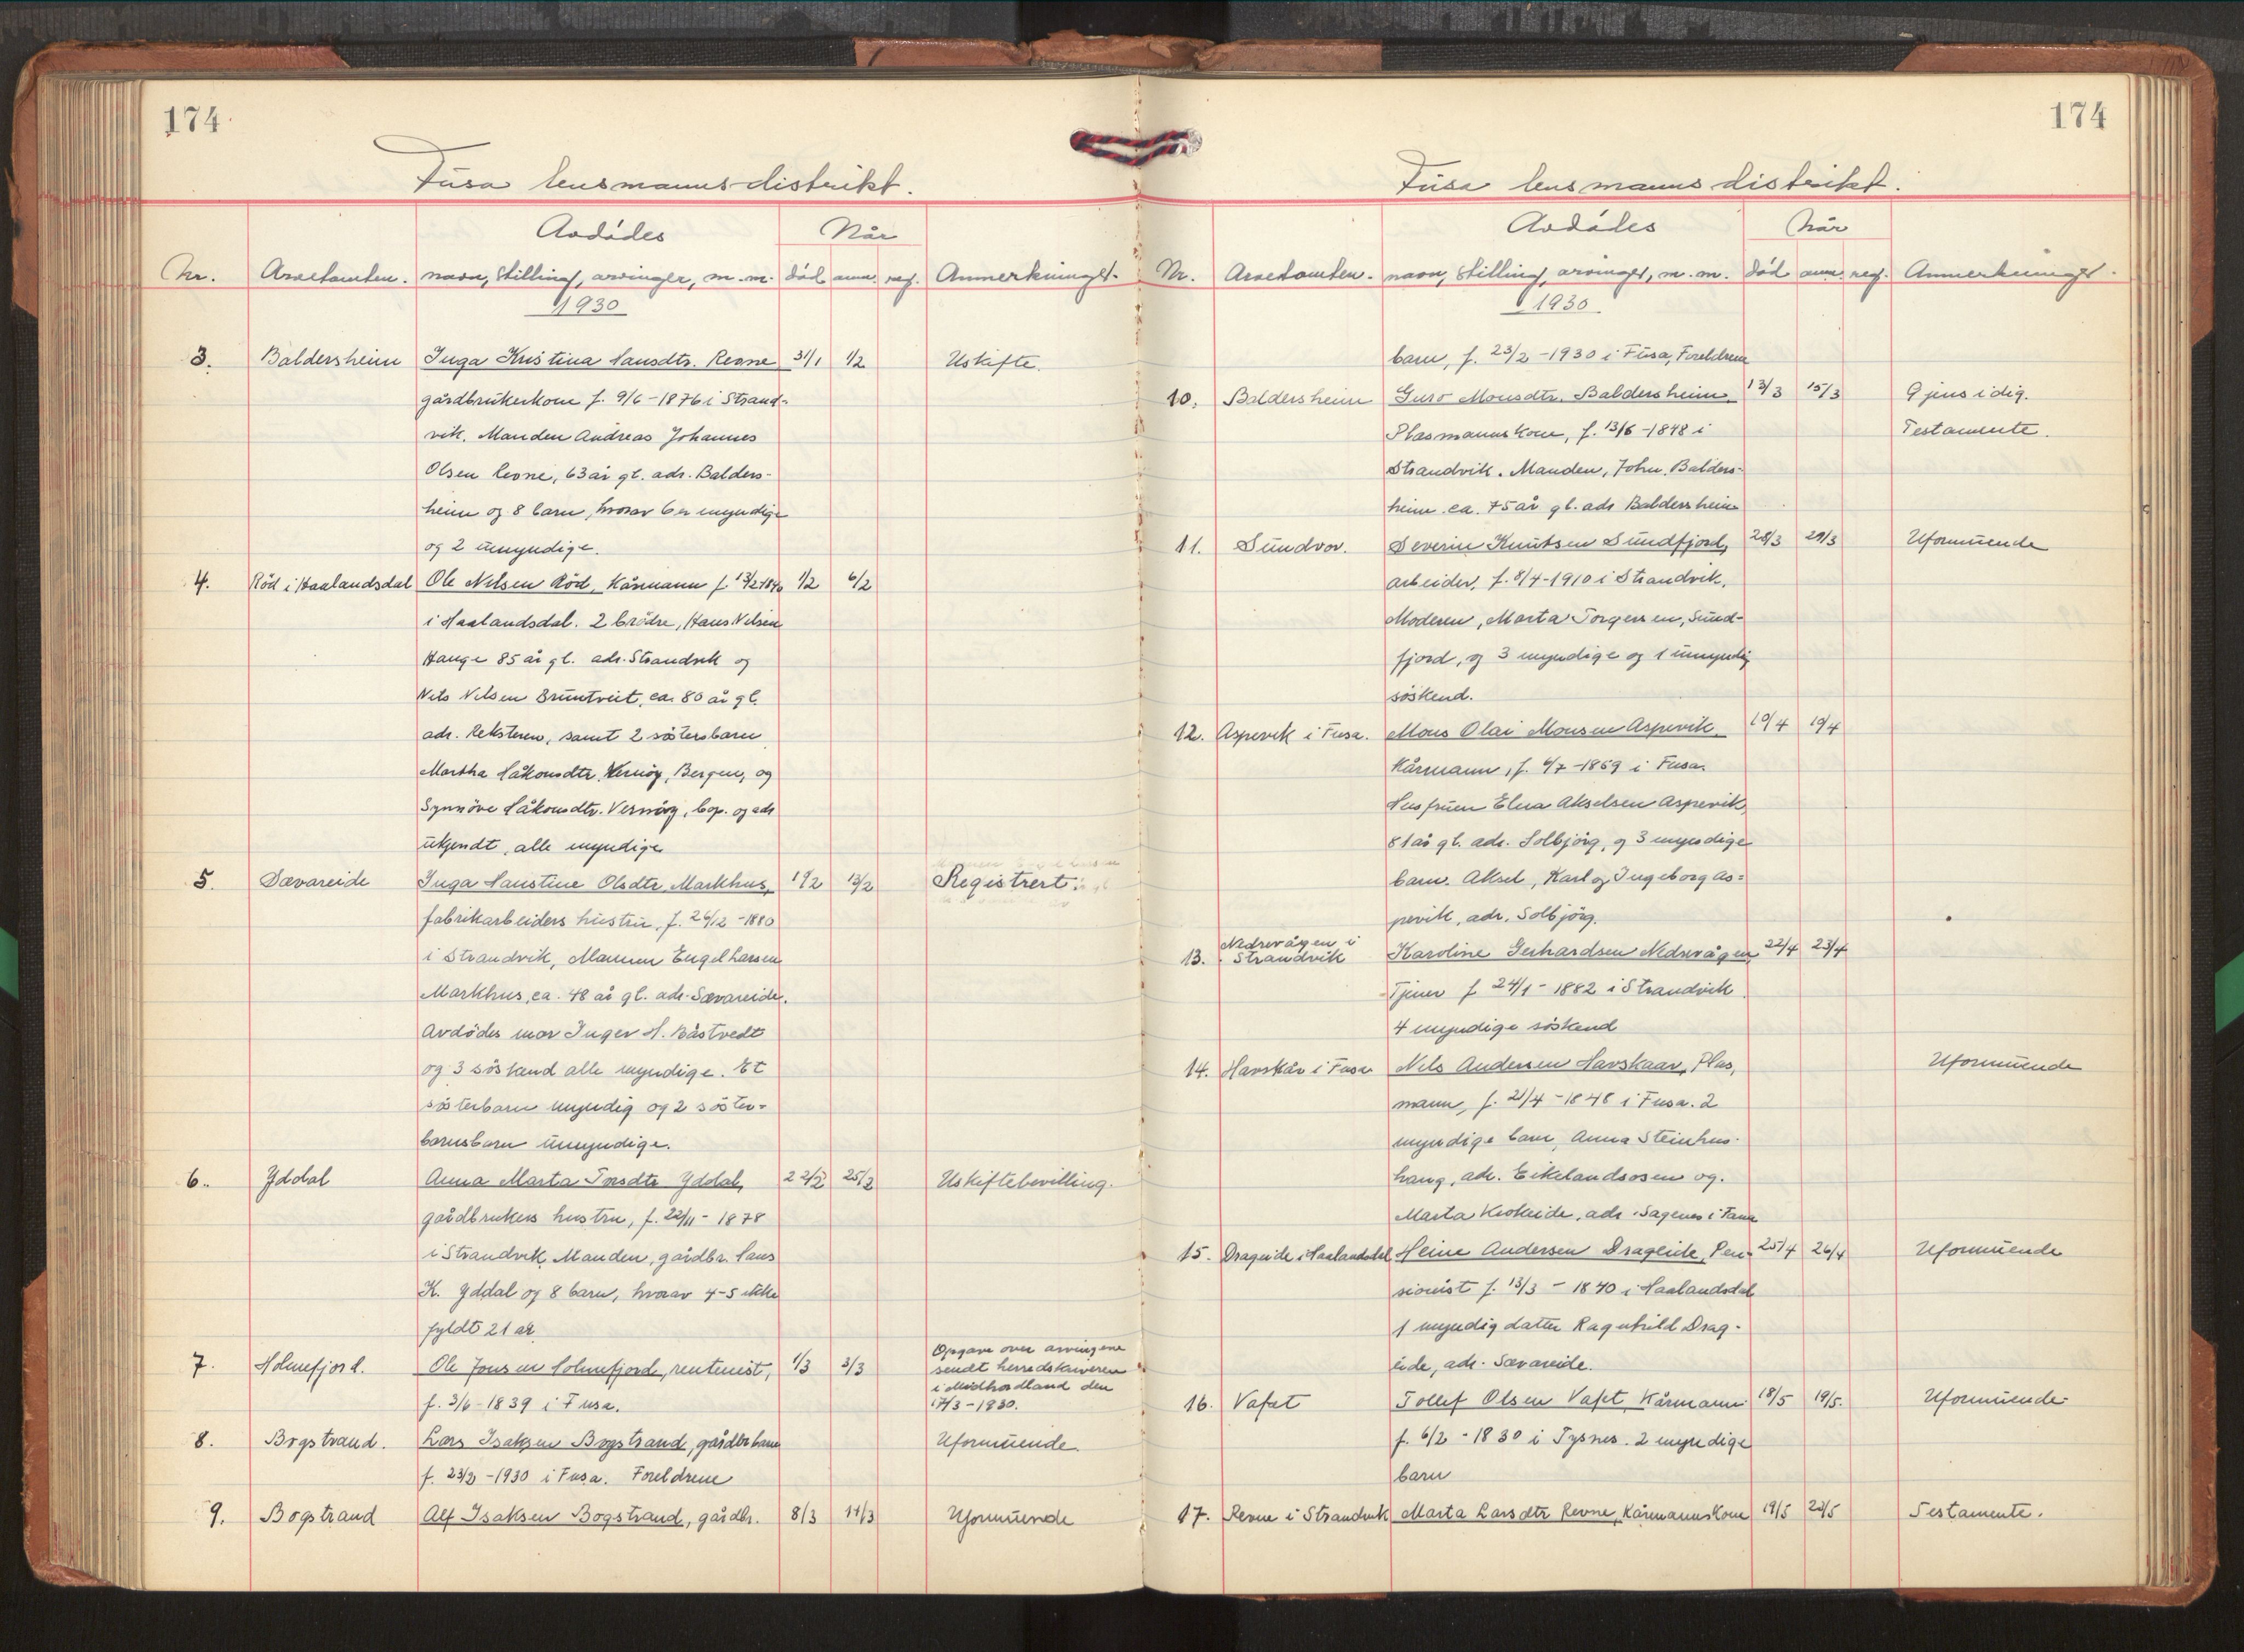 174
Fusa lensmannsdistrikt.
Avdødes Når
Nr. Arvetomten. navn, stilling, arvinger, m.m. død anm. reg. Anmerkninger.
1930
3. Baldersheim Inga Kristina Hansdtr. Revne 31/1 1/2 Uskifte.
gårdbrukerkone f. 9/6-1876 i Strand-
vik. Manden Andreas Johannes
Olsen Revne, 63 år gl. adr. Balders-
heim og 8 barn, hvorav 6 er myndige
og 2 umyndige.
4. Röd i Haalandsdal Ole Nilsen Röd, Kårmann f. 13/2 1840 1/2 6/2
i Haalandsdal. 2 brödre, Hans Nilsen
Hauge 85 år gl. adr. Strandvik og
Nils Nilsen Bruntveit, ca. 80 år gl.
adr. Reksteren, samt 2 söstersbarn
Martha Håkonsdtr. Vernöy, Bergen, og
Synnöve Håkonsdtr. Vernöy, bop. og adr
ukjendt, alle myndige
5. Sævareide Inga Haustine Olsdtr. Markhus, 12/2 13/2 Registrert.
fabrikarbeiders hustru, f. 26/12-1880
i Strandvik, Mannen Engel Larsen
Markhus, ca. 48 år gl. adr. Sævareide.
Avdödes mor Inger H. Båstvedt
og 3 söskend alle myndige. Et
sösterbarn myndig og 2 söster-
barnsbarn umyndige.
6. Yddal Anna Marta Larsdtr Yddal, 22/2 25/2 Uskiftebevilling.
gårdbrukers hustru, f. 22/11-1878
i Strandvik. Manden, gårdbr. Hans
K. Yddal og 8 barn, hvorav 4-5 ikke
fyldt 21 år
7. Holmefjord. Ole Jonsen Holmefjord, rentenist, 1/3 3/3 Opgave over arvingene
sendt herredskriveren
i Midthordland den
17/3-1930.
f. 3/6-1839 i Fusa.
8. Bogstrand. Lars Isaksen Bogstrand, gårdbr barn Uformuende.
f. 23/2-1930 i Fusa. Foreldrene
9. Bogstrand Alf Isaksen Bogstrand, gårdbr. 8/3 11/3 Uformuende
174
Fusa lensmannsdistrikt.
Avdødes Når
Nr. Arvetomten. navn, stilling, arvinger, m.m. død anm. reg. Anmerkninger.
1930
barn, f. 23/2-1930 i Fusa, Foreldrene
10. Baldersheim Guro Monsdtr. Baldersheim 13/3 15/3 Gjensidig.
Plasmannskone, f. 13/6-1848 i Testamente.
Strandvik. Manden, John Balders-
heim ca. 75 år gl. adr Baldersheim
11. Sundvor. Severin Knutsen Sundfjord, 28/3 29/3 Uformuende
arbeider, f. 8/4-1910 i Strandvik.
Moderen, Marta Torgersen, Sund-
fjord, og 3 myndige og 1 umyndig
söskend.
12. Aspevik i Fusa. Mons Olai Monsen Aspevik 10/4 19/4
Kårmann, f. 4/7-1869 i Fusa.
Husfruen Elna Akselsen Aspevik,
81 år gl. adr. Solbjörg, og 3 myndige
barn. Aksel, Karl og Ingeborg As-
pevik, adr. Solbjörg.
13. Nedrevågen i Strandvik Karoline Gerhardsen Nedrevågen 22/4 23/4
Tjener f. 24/1-1882 i Strandvik
4 myndige söskend
14. Havskår i Fusa Nils Andersen Havskaar, Plas, Uformuende
mann, f. 21/4-1848 i Fusa. 2
myndige barn, Anna Steinhus-
haug, adr. Eikelandsosen og.
Marta Krokeide, adr. Sagenes i Fana
15. Drageide i Haalandsdal Heine Andersen Drageide, Pen- 25/4 26/4 Uformuende
sionist f. 13/3-1840 i Haalandsdal
1 myndig datter Ragnhild Drag-
eide, adr. Sævareide.
16. Vafat Tollef Olsen Vafet Kårmann 18/5 19/5. Uformuende
f. 6/2-1830 i Tysnes. 2 myndige
barn
17. Revne i Strandvik Marta Larsdtr Revne, Kårmannskone 19/5 22/5 Testamente.